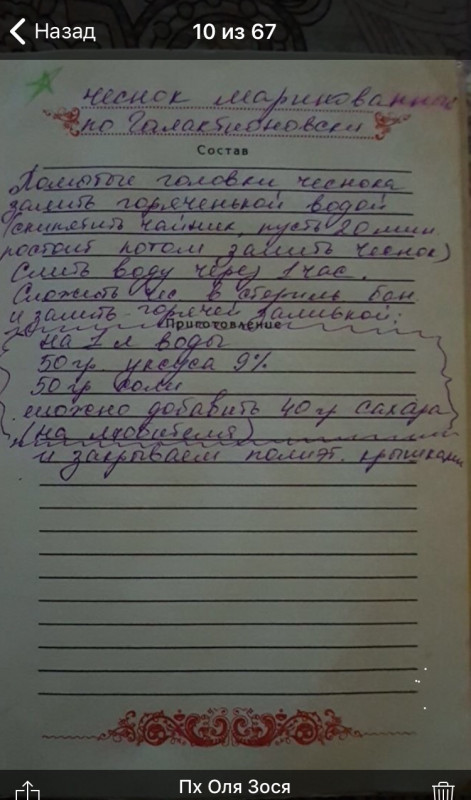 Назад
10 из 67
чеснок маринованный
по Галактионовски
Состав
Помытые головки чеснока
залить горяченькой водой
(скипятить чайник, пусть 20 мин.
ростоит потом залить чеснок)
Слить воду через 1 час.
Сложить чес в стериль бан.
и залить горячей заливкой:
Приготовление
на 1 л воды
50 гр. уксуса 9%
50 гр соли
можно добавить 40 гр сахара
(на любителя)
и закрываем полиэт. крышками
Пх Оля Зося